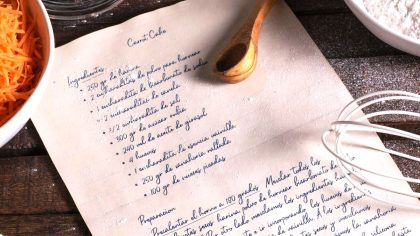 Carrot Cake
Ingredientes
250 gr de harina
2 cucharaditas de polvo para hornear
1 cucharadita de bicarbonato de sodio
2 cucharaditas de canela
1/2 cucharadita de sal
300 gr de azúcar rubia
240 ml de aceite de girasol
4 huevos
1 cucharadita de esencia vainilla
250 gr de zanahoria rallada
100 gr de nueces picadas
Preparación
Precalentar el horno a 180 grados. Mezclar todos los
ingredientes secos harina polvo de hornear bicarbonato de
otro lado mezclamos los ingredientes
e ir incorporando los huevos de
de vainilla. A los ingredientes
secos y mezclamos
la zanahoria